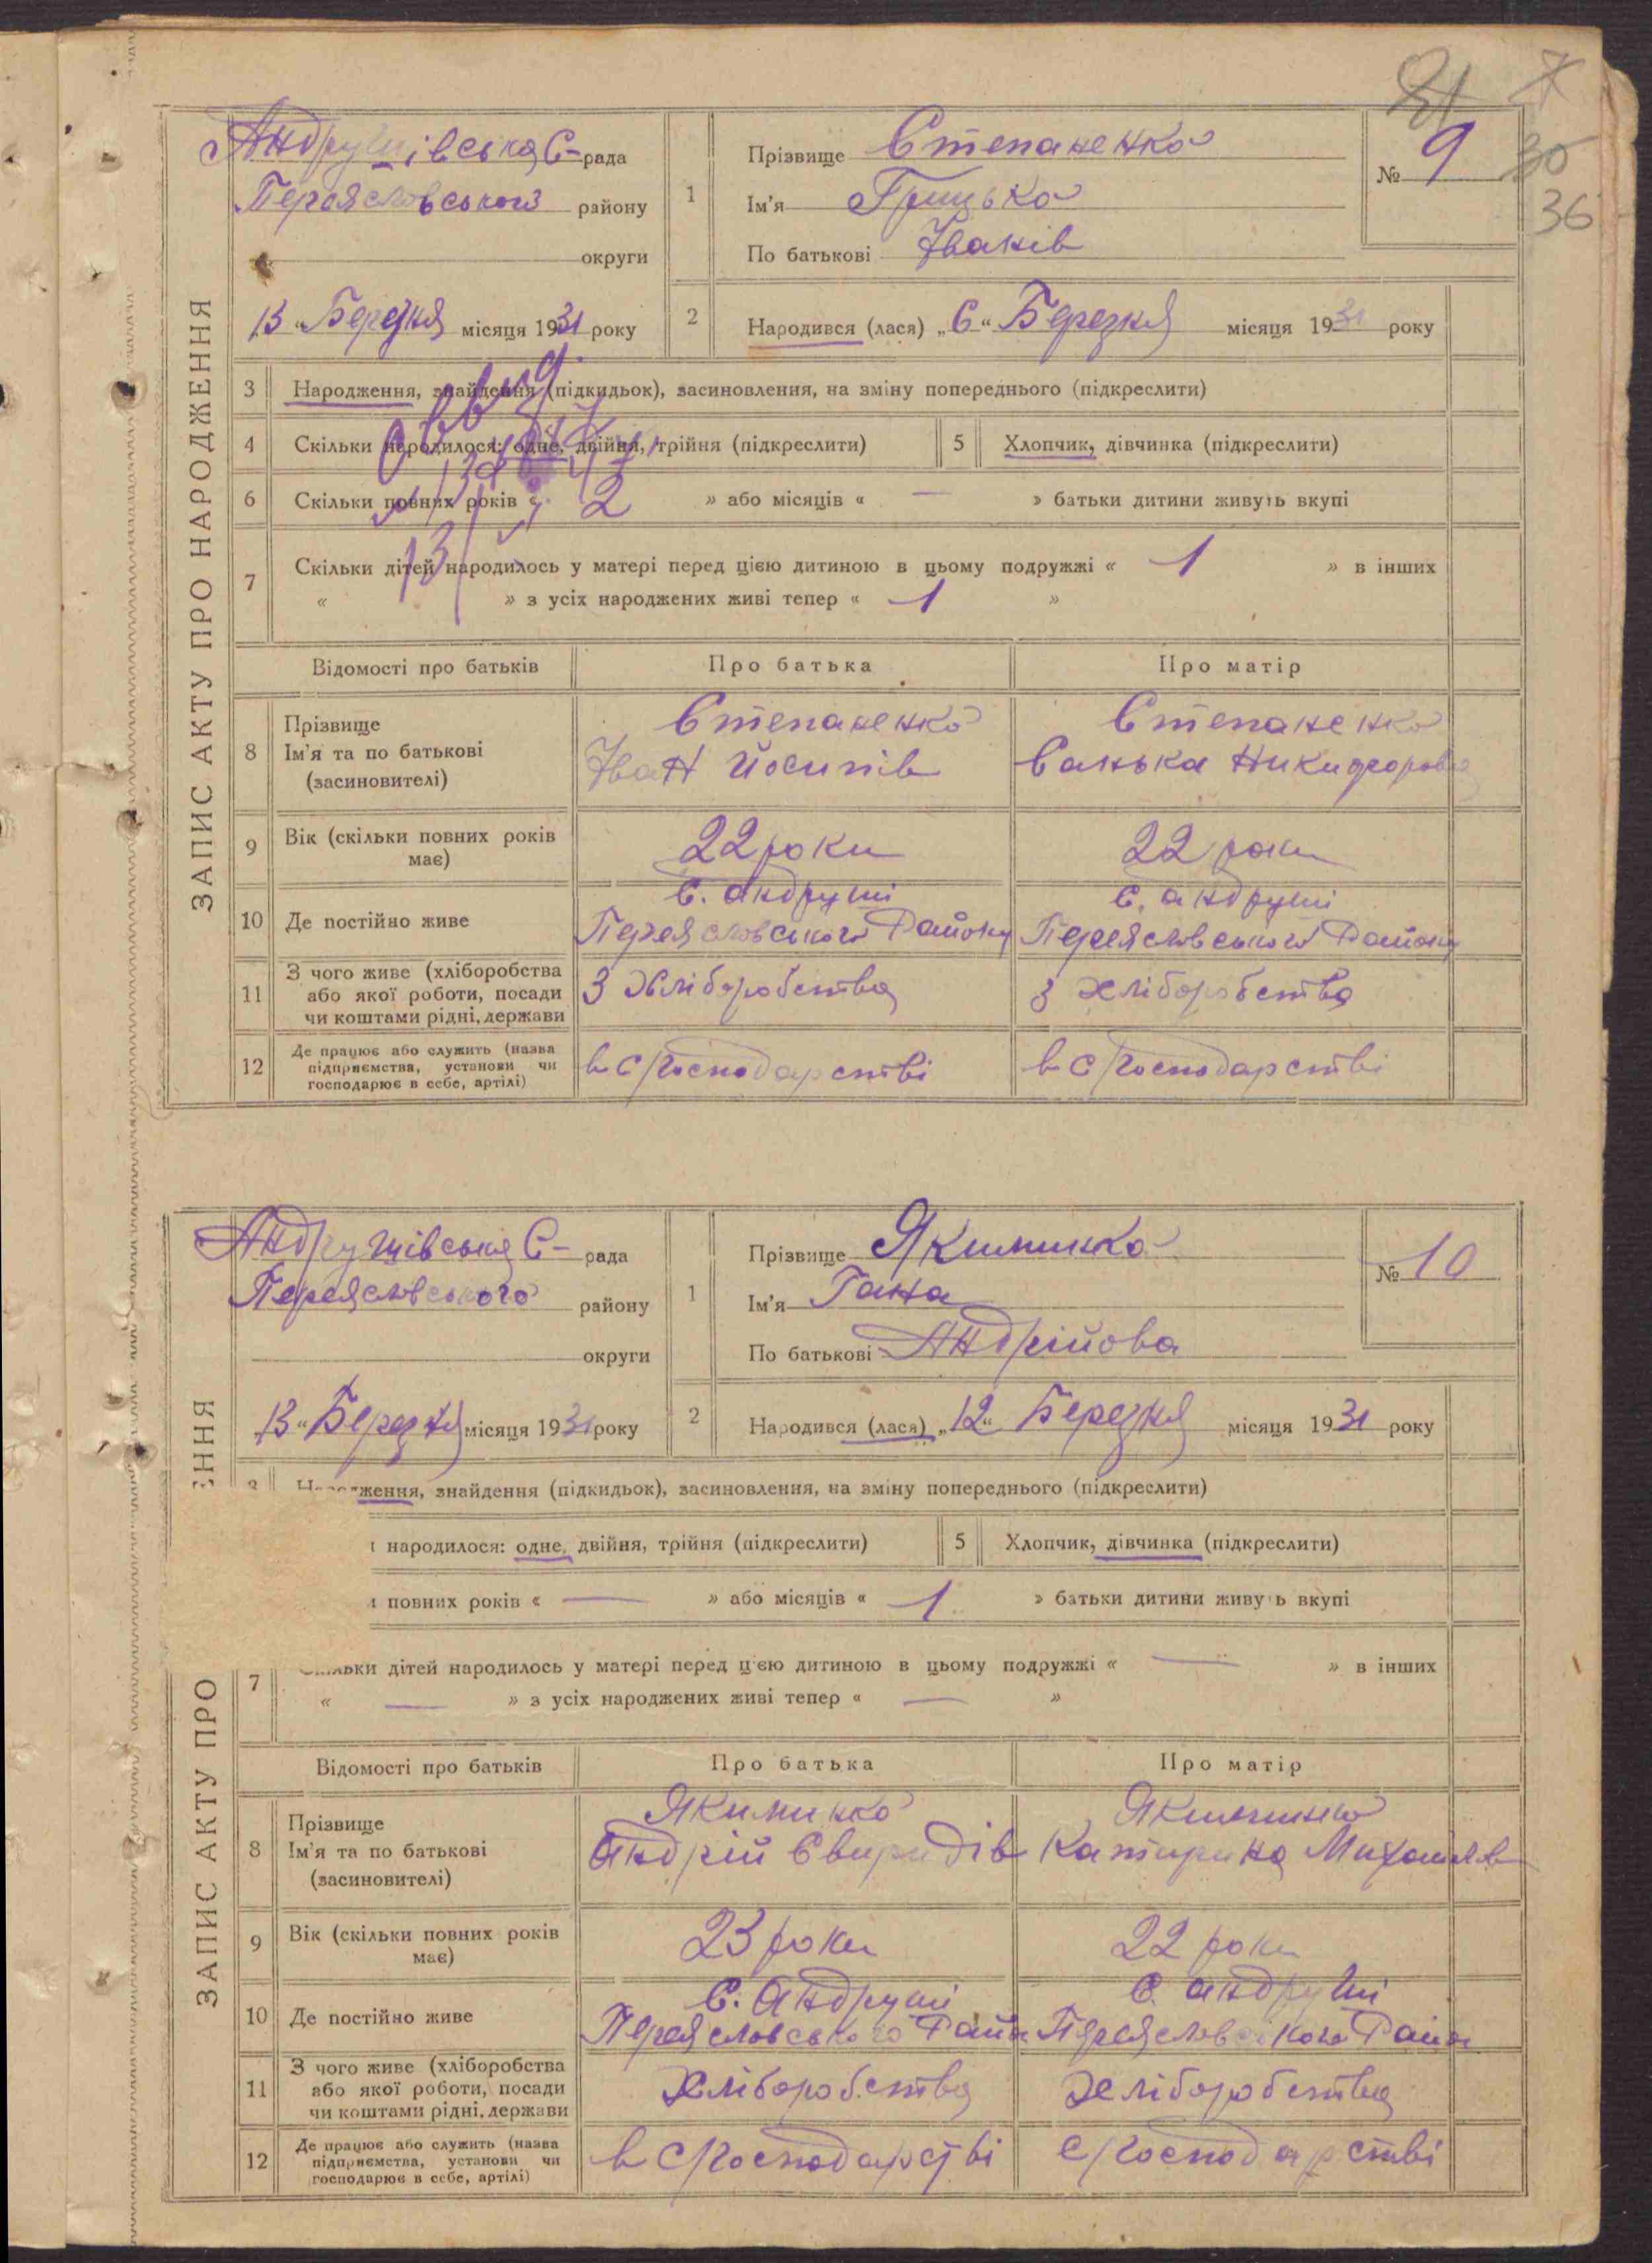 7
30
36
ЗАПИС АКТУ ПРО НАРОДЖЕННЯ
Андрушівська С-рада
Переясловського району
округи
13 „ Березня місяця 1931 року
1
Прізвище Степаненко
Ім'я Грицько
По батькові Іванів
№ 9
2
Народився (лася) „6“ Березня місяця 1931 року
3 Народження, знайдення (підкидьок), засиновлення, на зміну попереднього (підкреслити)
4 Скільки народилося: одне, двійня, трійня (підкреслити) 5 Хлопчик, дівчинка (підкреслити)
6 Скільки повних років « 2 » або місяців « — » батьки дитини живуть вкупі
7 Скільки дітей народилось у матері перед цією дитиною в цьому подружжі « 1 » в інших
« » з усіх народжених живі тепер « 1 »
Відомості про батьків Про батька Про матір
8 Прізвище
Ім'я та по батькові
(засиновителі)
Степаненко
Іван Йосипів
Степаненко
Санька Никифорова
9 Вік (скільки повних років має)
22 роки
22 роки
10 Де постійно живе
с. Андруші
Переясловського Району
с. Андруші
Переясловського Району
11 З чого живе (хліборобства
або якої роботи, посади
чи коштами рідні, держави
З Хліборобства
З хліборобства
12 Де працює або служить (назва
підприємства, установи чи
господарює в себе, артілі)
в с/господарстві
в с/господарстві
ЕННЯ
ЗАПИС АКТУ ПРО
Андрушівська С-рада
Переясловського району
округи
13 „ Березня місяця 1931 року
1
Прізвище Якиминко
Ім'я Гана
По батькові Андрійова
№ 10
2
Народився (лася) „12“ Березня місяця 1931 року
ження, знайдення (підкидьок), засиновлення, на зміну попереднього (підкреслити)
народилося: одне, двійня, трійня (підкреслити) 5 Хлопчик, дівчинка (підкреслити)
повних років « — » або місяців « 1 » батьки дитини живу ь вкупі
7 Скільки дітей народилось у матері перед цією дитиною в цьому подружжі « — » в інших
« — » з усіх народжених живі тепер « — »
Відомості про батьків Про батька Про матір
8 Прізвище
Ім'я та по батькові
(засиновителі)
Якиминко
Андрій Свиридів
Якиминко
Катирина Михайлів
9 Вік (скільки повних років має)
23 роки
22 роки
10 Де постійно живе
С. Андруші
Переясловського Райн
С. Андруші
Переясловського Район
11 З чого живе (хліборобства
або якої роботи, посади
чи коштами рідні, держави
Хліборобства
Хліборобства
12 Де працює або служить (назва
підприємства, установи чи
господарює в себе, артілі)
в с/господарстві
с/господарстві